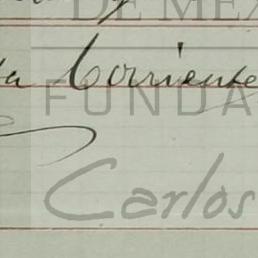 DE MÉX
ta Corriente
FUNDA
Carlos